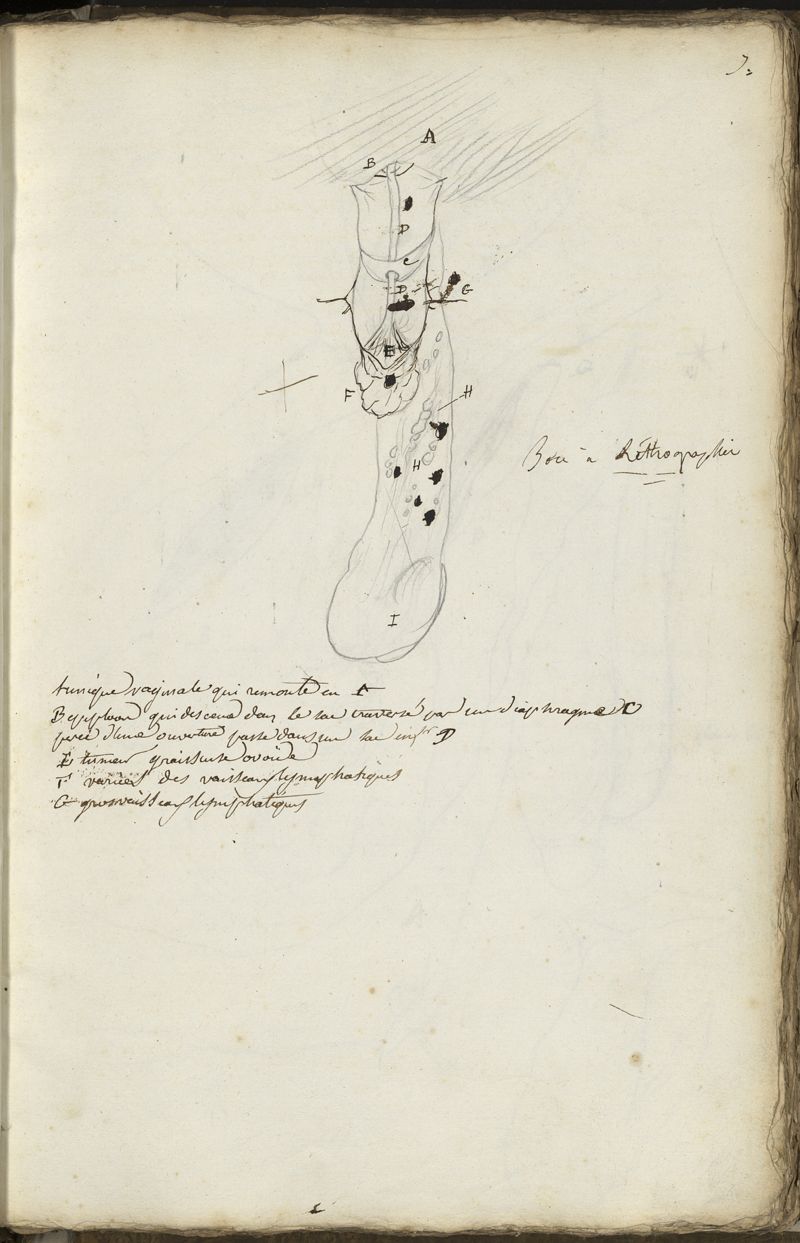 A
B
D
C
D
G
E
F
H
H
Bon à Lithographier
I
tunique vaginale qui remonte en A
B epiploon qui descend dans le sac traversé par un diaphragme C
percé d'une ouverture passe dans un sac inf^r D
E tumeur graisseuse ovoïde
F varices des vaisseaux lymphatiques
G gros vaisseaux lymphatiques